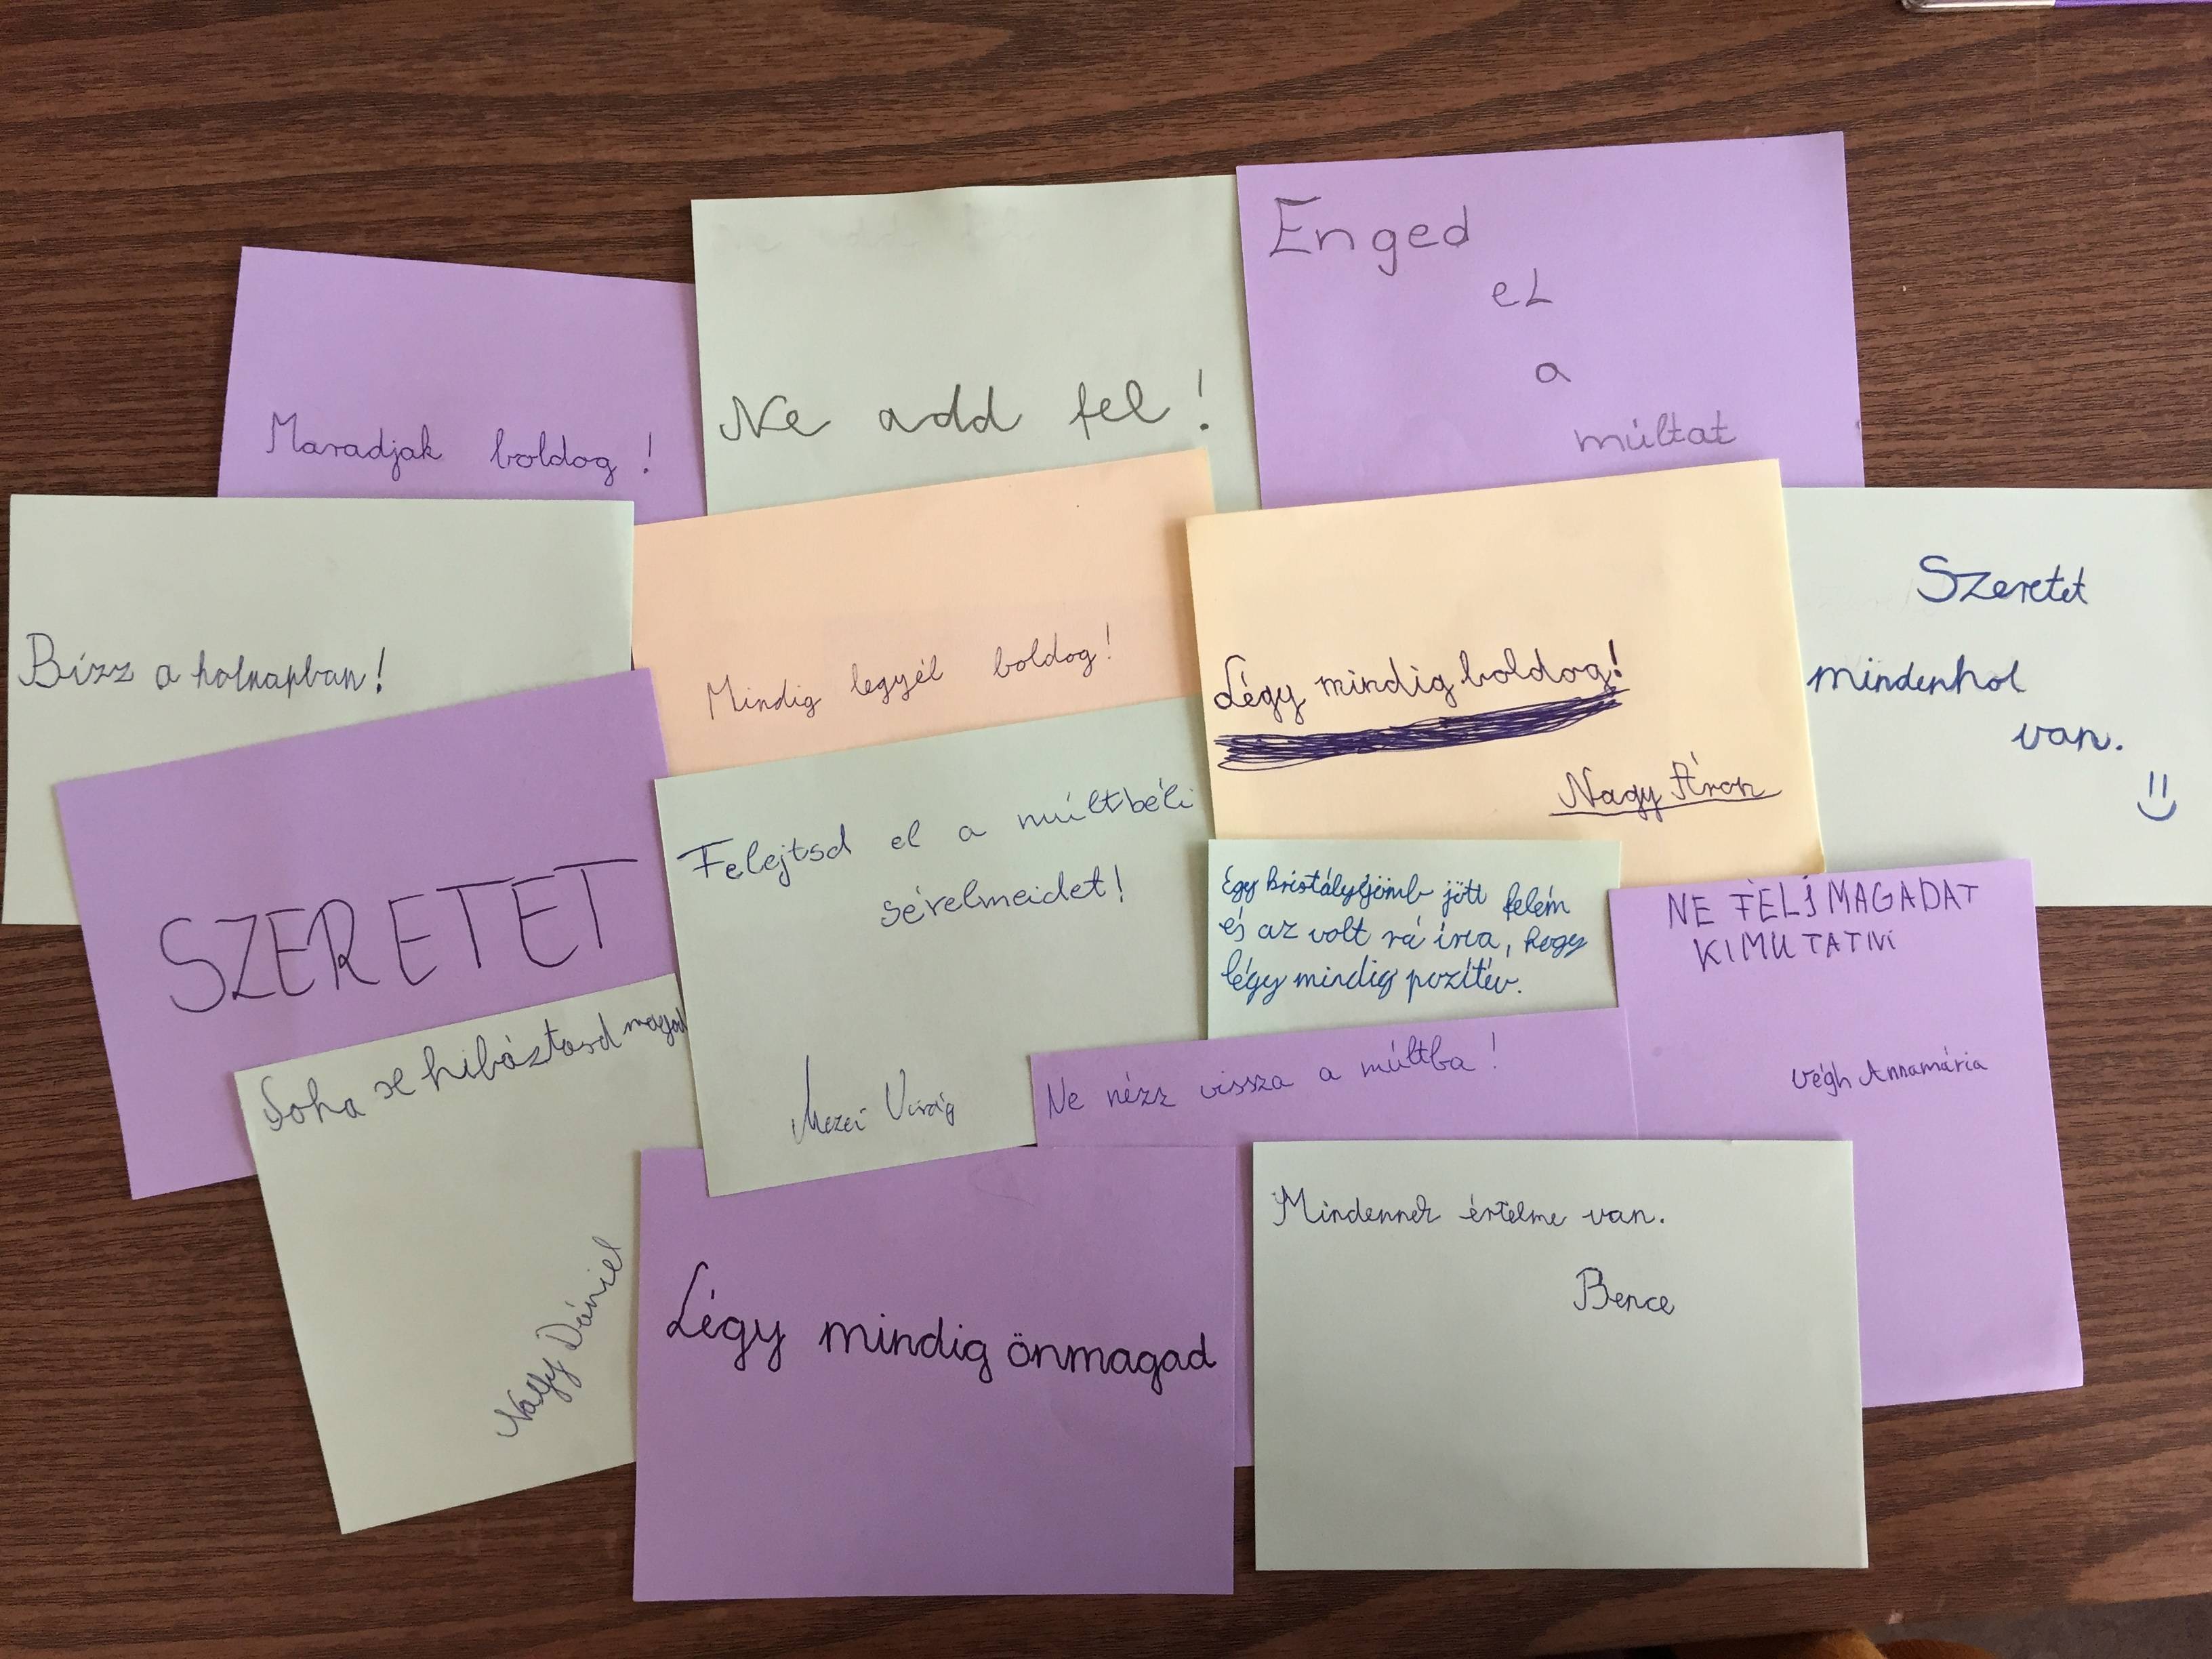 Maradjak boldog!
Ne add fel!
Enged
el
a
múltat
Bízz a holnapban!
Mindig legyél boldog!
Légy mindig boldog!
Nagy Áron
Szeretet
mindenhol
van.
SZERETET
Felejtsd el a múltbéli
sérelmeidet!
Mezei Virág
Egy kristálygömb jött felém
és az volt rá írva, hogy
légy mindig pozitív.
NE FÉLJ MAGADAT
KIMUTATNI
Végh Annamária
Soha se hibáztasd magad
Nagy Dániel
Ne nézz vissza a múltba!
Légy mindig önmagad
Mindennek értelme van.
Bence